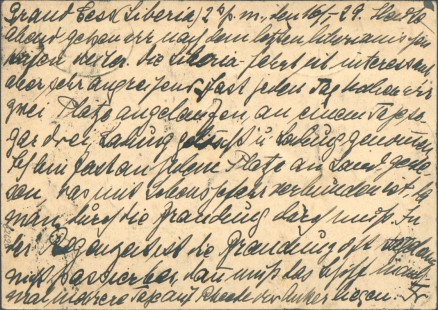 Grand Cess Liberia, 2 p.m., den 16/1. 29. Heute
abend gehen wir nach dem letzten liberianischen
Hafen weiter. Die Liberia-fahrt ist interessant
aber sehr angreifend, fast jeden Tag haben wir
zwei Plätze angelaufen, an einem Tage so-
gar drei, Ladung gelöscht u. Ladung genommen.
Ich bin fast an jedem Platze an Land gewe-
sen, was mit Lebensgefahr verbunden ist, da
man durch die Brandung durch muß. In
der Regenzeit ist die Brandung oft
nicht passierbar, dann muß das Schiff
mal mehrere Tage auf Rheede vor Anker liegen.